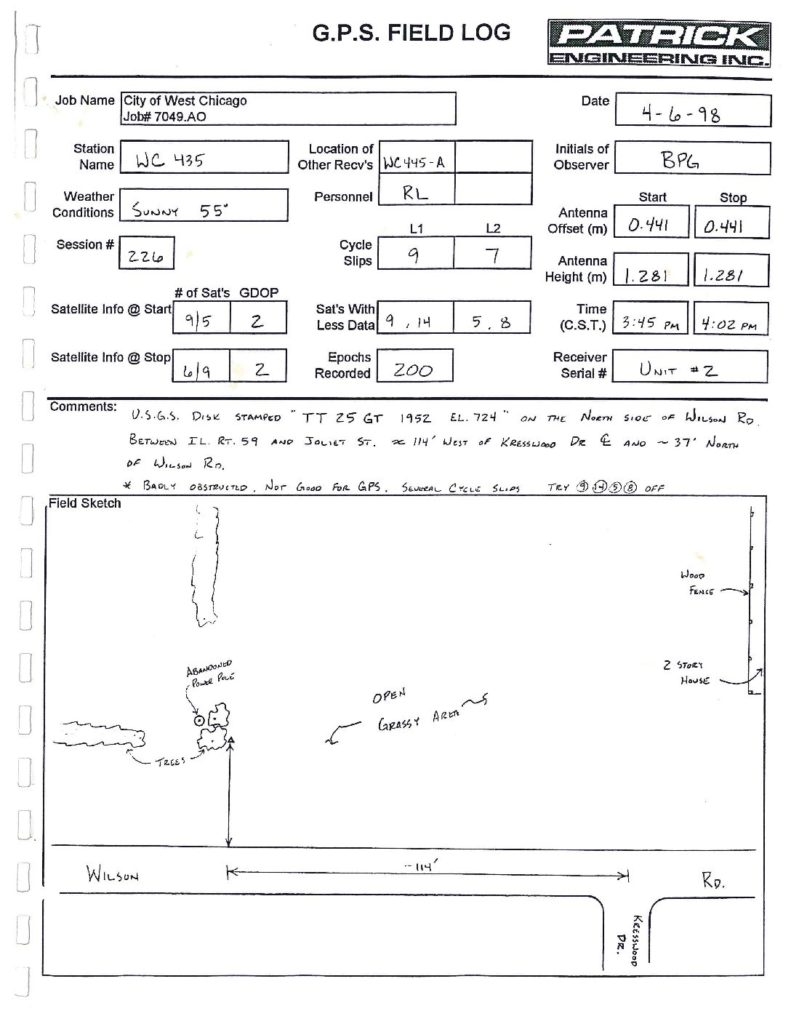 G.P.S. FIELD LOG
PATRICK
ENGINEERING INC.
Job Name City of West Chicago
Job# 7049.AO
Date 4-6-98
Station Name WC 435
Location of Other Recv's WC445-A
Initials of Observer BPG
Weather Conditions SUNNY 55°
Personnel RL
Start Stop
Antenna Offset (m) 0.441 0.441
Session # 226
L1 L2
Cycle Slips 9 7
Antenna Height (m) 1.281 1.281
# of Sat's GDOP
Satellite Info @ Start 9/5 2
Sat's With Less Data 9, 14 5, 8
Time (C.S.T.) 3:45 PM 4:02 PM
Satellite Info @ Stop 6/9 2
Epochs Recorded 200
Receiver Serial # UNIT #2
Comments:
U.S.G.S. DISK STAMPED "TT 25 GT 1952 EL. 724" ON THE NORTH SIDE OF WILSON RD.
BETWEEN IL. RT. 59 AND JOLIET ST. ≈ 114' WEST OF KRESSWOOD DR ℄ AND ~ 37' NORTH
OF WILSON RD.
* BADLY OBSTRUCTED, NOT GOOD FOR GPS, SEVERAL CYCLE SLIPS TRY 9 14 5 8 OFF
Field Sketch
WOOD
FENCE
ABANDONED
POWER POLE
2 STORY
HOUSE
OPEN
GRASSY AREA
TREES
~114'
WILSON RD.
KRESSWOOD
DR.